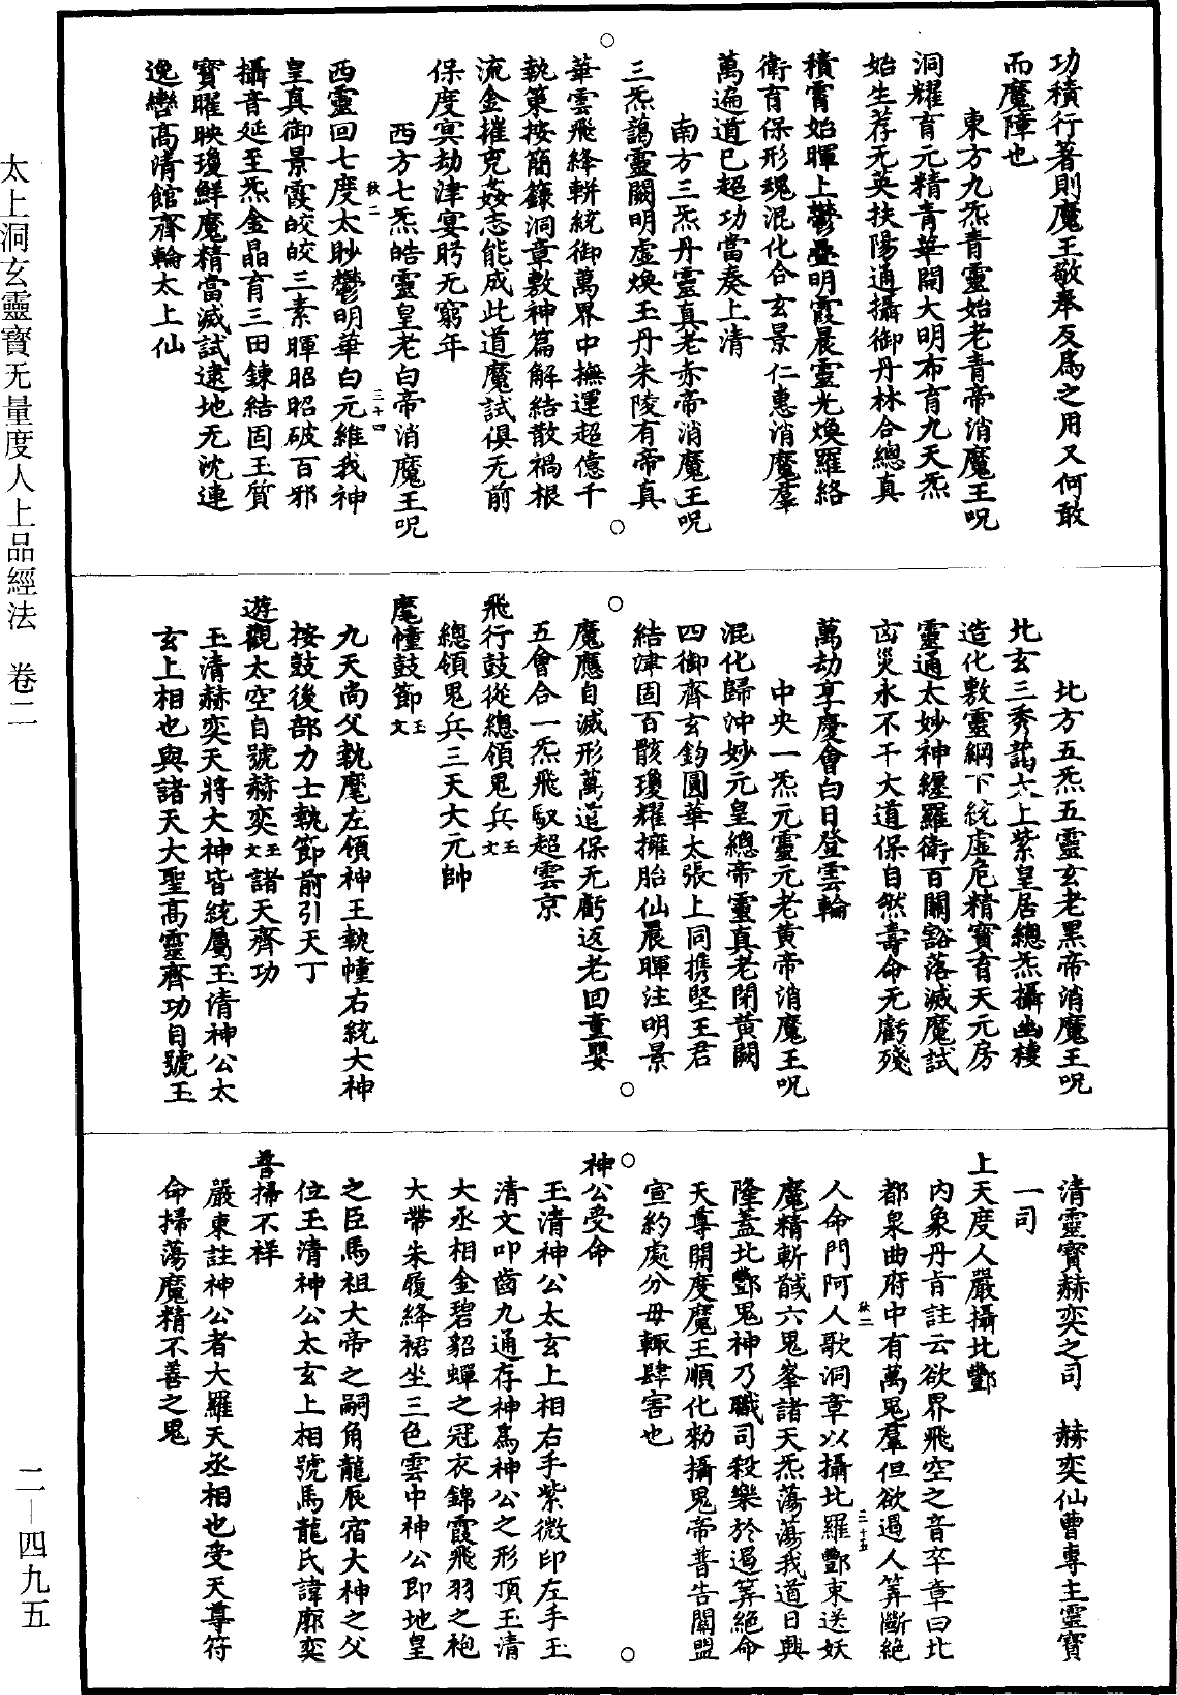 功積行著則魔王敬奉反爲之用又何敢
而魔障也
東方九炁青靈始老青帝消魔王呪
洞耀育元精青華開大明布育九天炁
始生荐无英扶陽通攝御丹林合總真
積霄始暉上鬱疊明霞晨靈光煥羅絡
衛育保形魂混化合玄景仁惠消魔羣
萬遍道已超功當奏上清
南方三炁丹靈真老赤帝消魔王呪
三炁藹靈闕明虛煥玉丹朱陵有帝真
華雲飛絳軿統御萬界中撫運超億千
執箓按簡籙洞章敷神篇解結散禍根
流金摧兇姦志能成此道魔試俱无前
保度冥劫津宴肹无窮年
西方七炁皓靈皇老白帝消魔王呪
西靈回七度太眇鬱明華白元維我神
秩二
二十四
皇真御景霞皎皎三素暉昭昭破百邪
攝音延至炁金晶育三田鍊結固玉質
寶曜映瓊鮮魔精當滅試逮地无沈連
逸轡高清館齊輪太上仙
北方五炁五靈玄老黑帝消魔王呪
北玄三秀藹太上紫皇居總炁攝幽棲
造化敷靈綱下統虛危精寶育天元房
靈通太妙神纏羅衛百關豁落滅魔試
凶災永不干大道保自然壽命无虧殘
萬劫享慶會白日登雲輪
中央一炁元靈元老黃帝消魔王呪
混化歸沖妙元皇總帝靈真老閉黃闕
四御齊玄鈞圓華太張上同携堅王君
結津固百骸瓊耀擁胎仙晨暉注明景
魔應自滅形萬道保无虧返老回童嬰
五會合一炁飛馭超雲京
飛行鼓從總領鬼兵玉文
總領鬼兵三天大元帥
麾幢鼓節玉文
九天尚父執麾左領神王執幢右統大神
按鼓後部力士執節前引天丁
遊觀太空自號赫奕玉文諸天齊功
玉清赫奕天將大神皆統屬玉清神公太
玄上相也與諸天大聖高靈齊功自號玉
清靈寶赫奕之司 赫奕仙曹專主靈寶
一司
上天度人嚴攝北酆
內象丹旨註云欲界飛空之音卒章曰北
都泉曲府中有萬鬼羣但欲遏人筭斷絕
人命門阿人歌洞章以攝北羅酆束送妖
秩二
二十五
魔精斬馘六鬼峯諸天炁蕩蕩我道日興
隆蓋北酆鬼神乃職司殺樂於遏筭絕命
天尊開度魔王順化勑攝鬼帝普告關盟
宣約處分毋輒肆害也
神公受命
玉清神公太玄上相右手紫微印左手玉
清文叩齒九通存神爲神公之形頂玉清
大丞相金碧貂蟬之冠衣錦霞飛羽之袍
大帶朱履絳裙坐三色雲中神公即地皇
之臣馬祖大帝之嗣角龍辰宿大神之父
位玉清神公太玄上相號馬龍氏諱廓奕
普掃不祥
嚴東註神公者大羅天丞相也受天尊符
命掃蕩魔精不善之鬼
太上洞玄靈寶无量度人上品經法 卷二
二—四九五